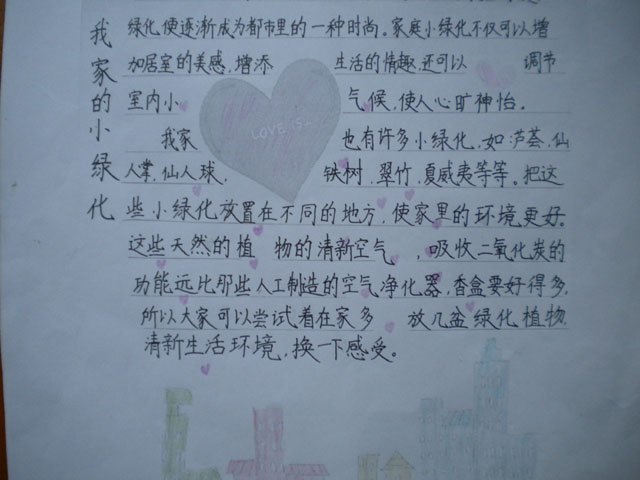 我家的小绿化
绿化,便逐渐成为都市里的一种时尚。家庭小绿化不仅可以增
加居室的美感,增添 生活的情趣,还可以 调节
室内小 气候,使人心旷神怡。
LOVE
我家 也有许多小绿化,如芦荟,仙
人掌,仙人球, 铁树,翠竹,夏威夷等等。把这
些小绿化放置在不同的地方,使家里的环境更好。
这些天然的植 物的清新空气 ,吸收二氧化炭的
功能远比那些人工制造的空气净化器,香盒要好得多,
所以大家可以尝试着在家多 放几盆绿化植物,
清新生活环境,换一下感受。